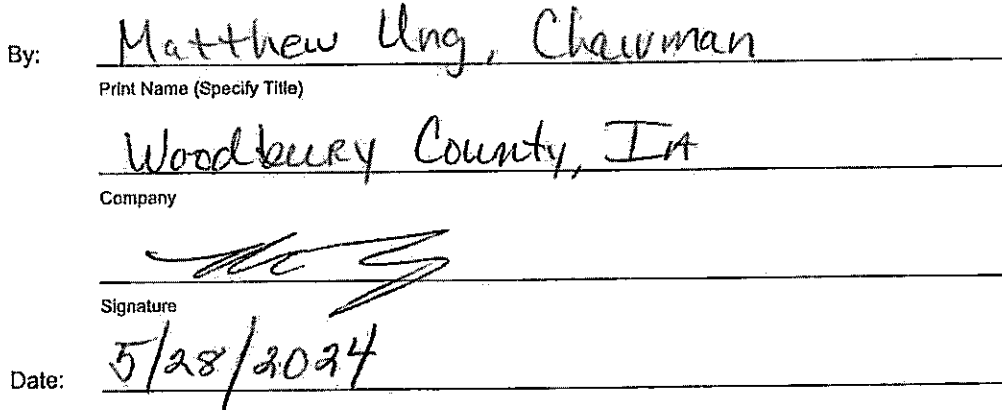 By: Matthew Ung, Chairman
Print Name (Specify Title)
Woodbury County, IA
Company
Signature
Date: 5/28/2024